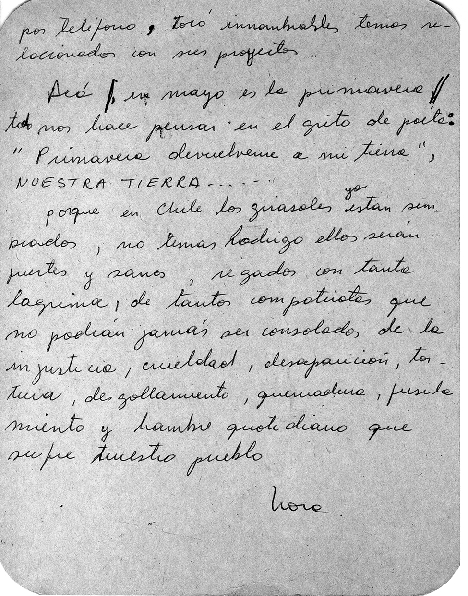 por Teléfono, tocó innumerables temas re-
lacionados con sus proyectos..
Acá, en mayo es la primavera
todo nos hace pensar en el grito de poeta:
"Primavera devuelveme a mi tierra",
NUESTRA TIERRA.......
porque en Chile los girasoles ya estan sem-
brados, no temas Rodrigo ellos serán
fuertes y sanos, regados con tanta
lagrima, de tantos compatriotas que
no podrán jamás ser consolados de la
injusticia, crueldad, desaparición, tor-
tura, degollamiento, quemadura, fusila
miento y hambre quotidiano que
sufre nuestro pueblo